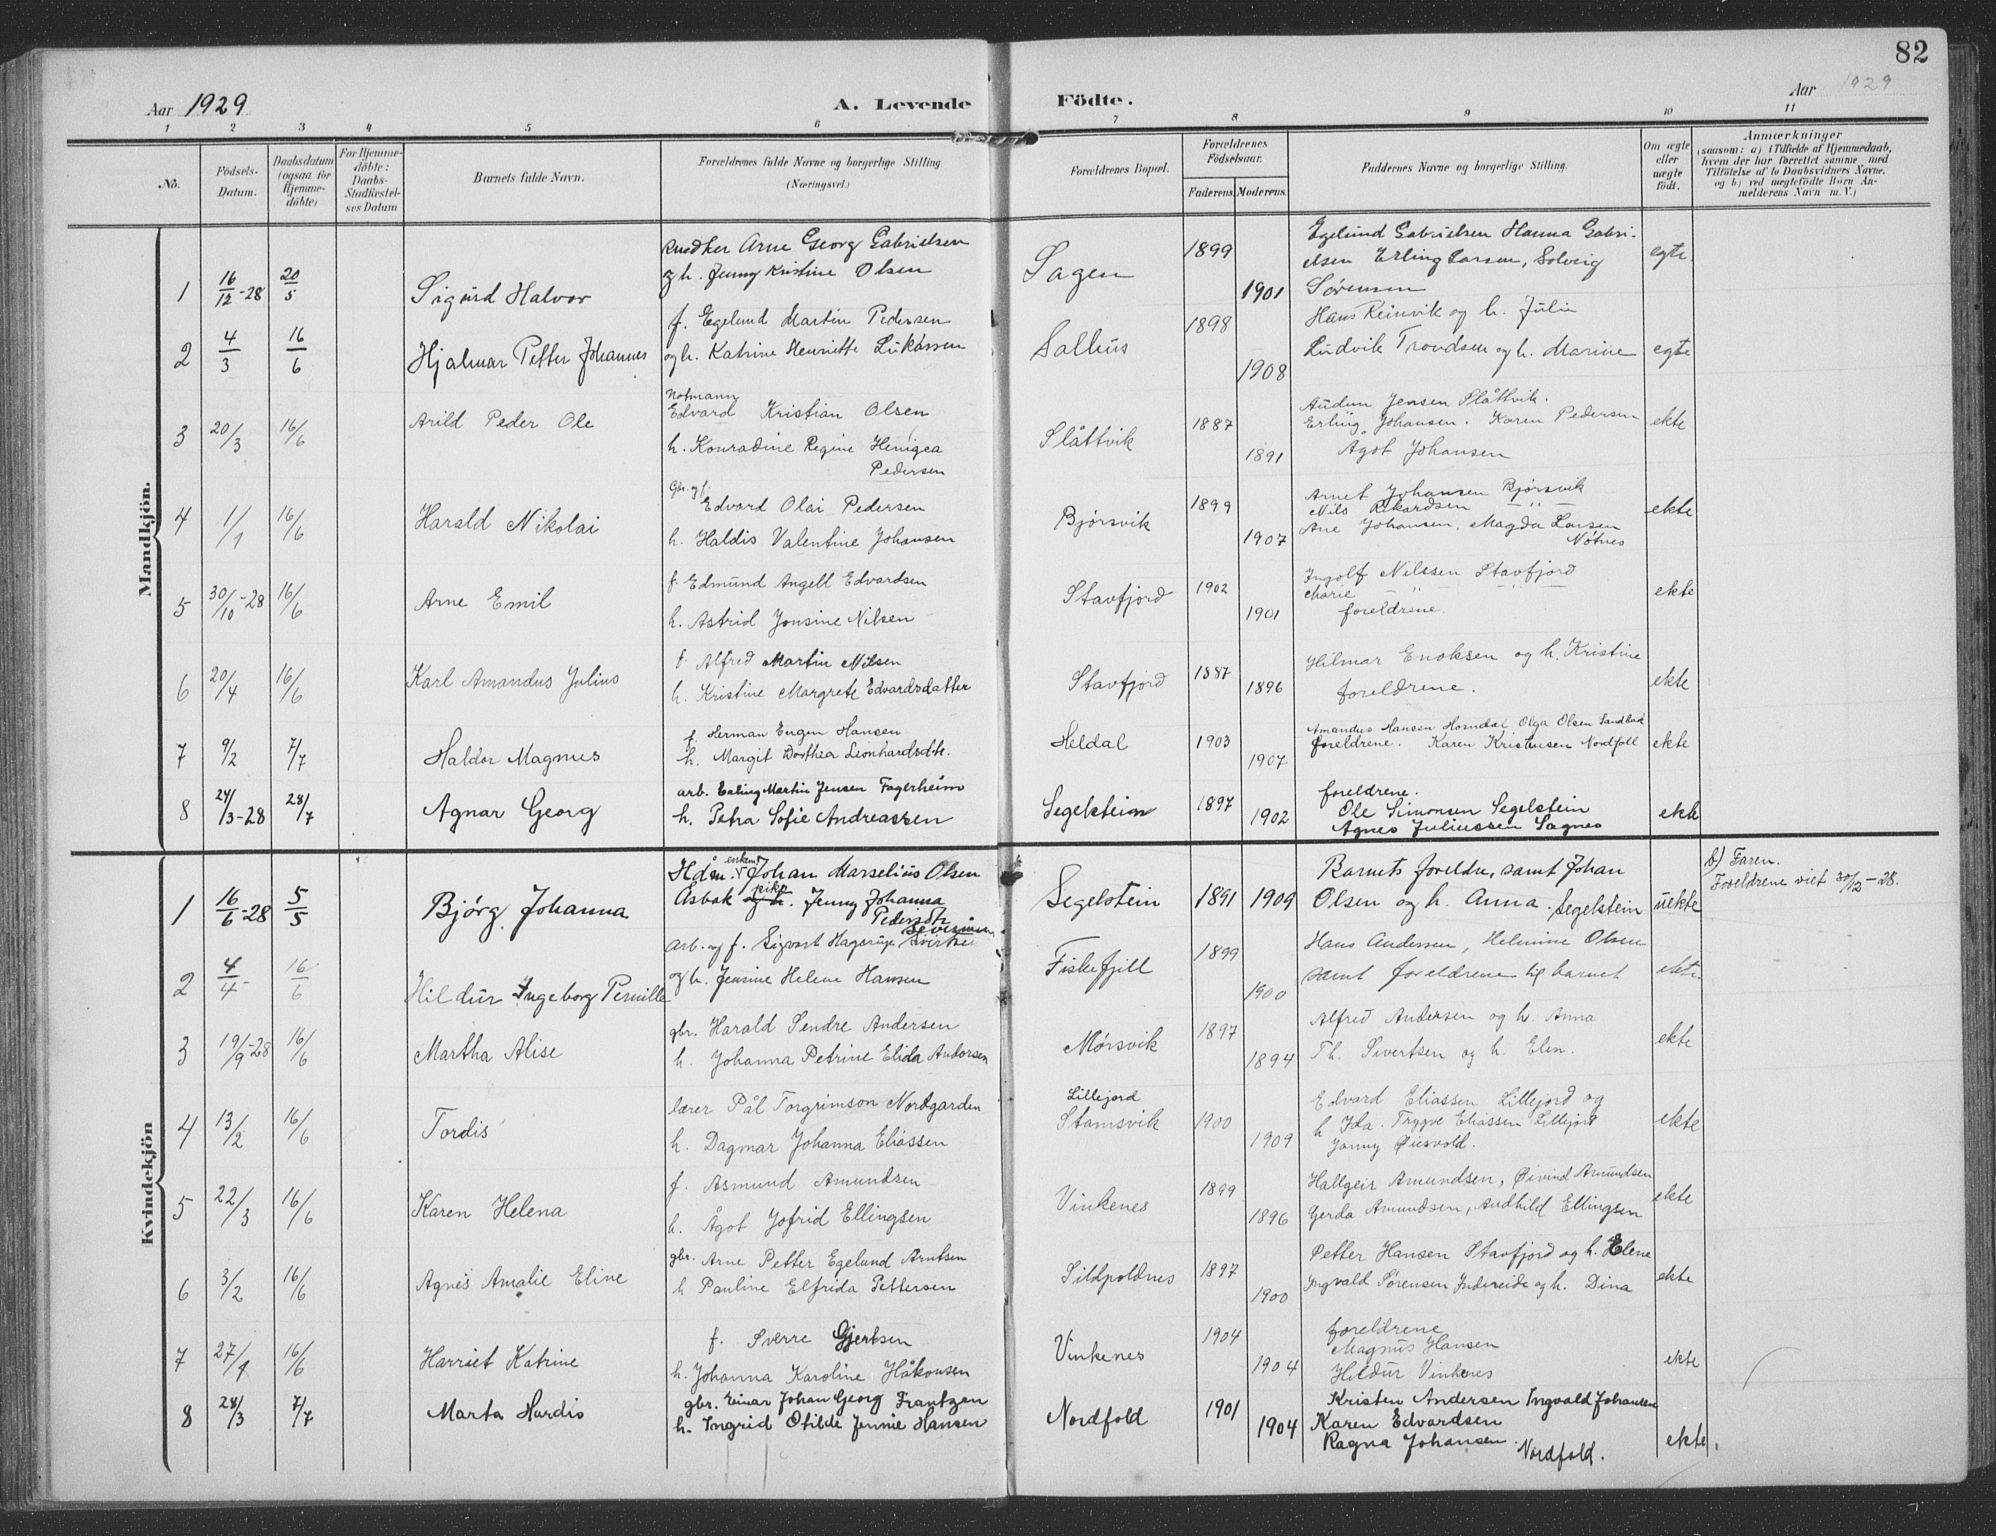 82
Aar 1929 A. Levende Födte. Aar 1929
1 2 3 4 5 6 7 8 9 10 11
No.
Födsels-Datum.
Daabsdatum (ogsaa for Hjemme-döbte)
For Hjemme-döbte: Daabs-Stadfæstel-ses Datum
Barnets fulde Navn.
Forældrenes fulde Navne og borgerlige Stilling. (Næringsvei.)
Forældrenes Bopæl.
Forældrenes Födselsaar.
Faderens. Moderens.
Faddernes Navne og borgerlige Stilling.
Om ægte eller uægte födt.
Anmærkninger
(saasom: a) i Tilfælde af Hjemmedaab, hvem der har forrettet samme, med Tilföielse af to Daabsvidners Navne, og b) ved uægtefödte Börn An-melderens Navn m. V.)
Mandkjön.
1 16/12-28 20/5 Sigurd Halvor
snedker Arne Georg Gabrielsen
og h. Jenny Kristine Olsen
Sagen 1899 1901
Egelund Gabrielsen Hanna Gabri-
elsen Erling Larsen, Solveig
Sørensen
egte
2 4/3 16/6 Hjalmar Petter Johannes
f. Egelund Martin Pedersen
og h. Katrine Henriette Lukassen
Salhus 1898 1908
Hans Reinvik og h. Julie
Ludvik Trondsen og h. Marine
egte
3 20/3 16/6 Arild Peder Ole
Notmann
Edvard Kristian Olsen
h. Konradine Regine Henigea
Pedersen
Slåttvik 1887 1891
Audun Jensen Slåttvik.
Erling Johansen. Karen Pedersen
Agot Johansen
ekte
4 1/1 16/6 Harald Nikolai
Gbr. og f.
Edvard Olai Pedersen
h. Haldis Valentine Johansen
Bjørsvik 1899 1907
Arnet Johansen Bjørsvik
Nils Rikardsen — " —
Ane Johansen, Magda Larsen
Nøtnes
ekte
5 30/10-28 16/6 Arne Emil
f. Edmund Angell Edvardsen
h. Astrid Jonsine Nilsen
Stavfjord 1902 1901
Ingolf Nilssen Stavfjord
Marie — " —
foreldrene.
ekte
6 20/4 16/6 Karl Amandus Julius
f. Alfred Martin Nilsen
h. Kristine Margrete Edvardsdatter
Stavfjord 1887 1896
Hilmar Enoksen og h. Kristine
foreldrene.
ekte
7 9/2 7/7 Haldor Magnus
f. Herman Eugen Hansen
h. Margit Dorthea Leonhardsdtr.
Heldal 1903 1907
Amandus Hansen Horndal, Olga Olsen Sandbak
foreldrene. Karen Kristensen Nordfoll
ekte
8 24/3-28 28/7 Agnar Georg
arb. Erling Martin Jensen Fagerheim
h. Petra Sofie Andreassen
Segelstein 1897 1902
foreldrene.
Ole Simonsen Segelstein
Agnes Juliussen Sagnes
ekte
Kvindekjön
1 16/6-28 5/5 Bjørg Johanna
Hdm. enkem. Johan Marselius Olsen
Åsbak og h. pike Jenny Johanna
Pedersdtr
Segelstein 1891 1909
Barnets foreldre, samt Johan
Olsen og h. Anna. Segelstein
uekte
b) Faren.
Foreldrene viet 30/12-28.
2 4/4 16/6 Hildur Ingeborg Pernille
arb. og f. Sigvart Hagerup
og h. Jensine Helene Hansen
Fiskefjell 1899 1900
Hans Andersen, Helmine Olsen
samt foreldrene til barnet
ekte
3 19/9-28 16/6 Martha Alise
gbr. Harald Sendre Andersen
h. Johanna Petrine Elida Andorsen
Mørsvik 1897 1894
Alfred Andersen og h. Anna
Th. Sivertsen og h. Elen.
ekte
4 13/2 16/6 Tordis
lærer Pål Torgrimson Nordgarden
h. Dagmar Johanna Eliassen
Lillejord
Stamsvik 1900 1909
Edvard Eliassen Lillejord og
h Ida. Trygve Eliassen Lillejord
Jonny Øiesvold.
ekte
5 22/3 16/6 Karen Helena
f. Asmund Amundsen
h. Ågot Jofrid Ellingsen
Vinkenes 1899 1896
Hallgeir Amundsen, Øivind Amundsen
Gerda Amundsen, Audhild Ellingsen
ekte
6 3/2 16/6 Agnes Amalie Eline
gbr. Arne Petter Egelund Arntsen
h Pauline Elfrida Pettersen
Sildpoldnes 1897 1900
Petter Hansen Stavfjord og h. Elene
Ingvald Sørensen Indreeide og h. Dina
ekte
7 27/4 16/6 Harriet Katrine
f. Sverre Gjertsen
h. Johanna Karoline Håkonsen
Vinkenes 1904 1904
foreldrene
Magnus Hansen
Hildur Vinkenes
ekte
8 28/3 7/7 Marta Hardis
gbr. Einar Johan Georg Frantzen
h. Ingrid Otilde Jennie Hansen
Nordfold 1901 1904
Kristen Andersen Ingvald Johansen
Karen Edvardsen
Ragna Johansen. Nordfold.
ekte.